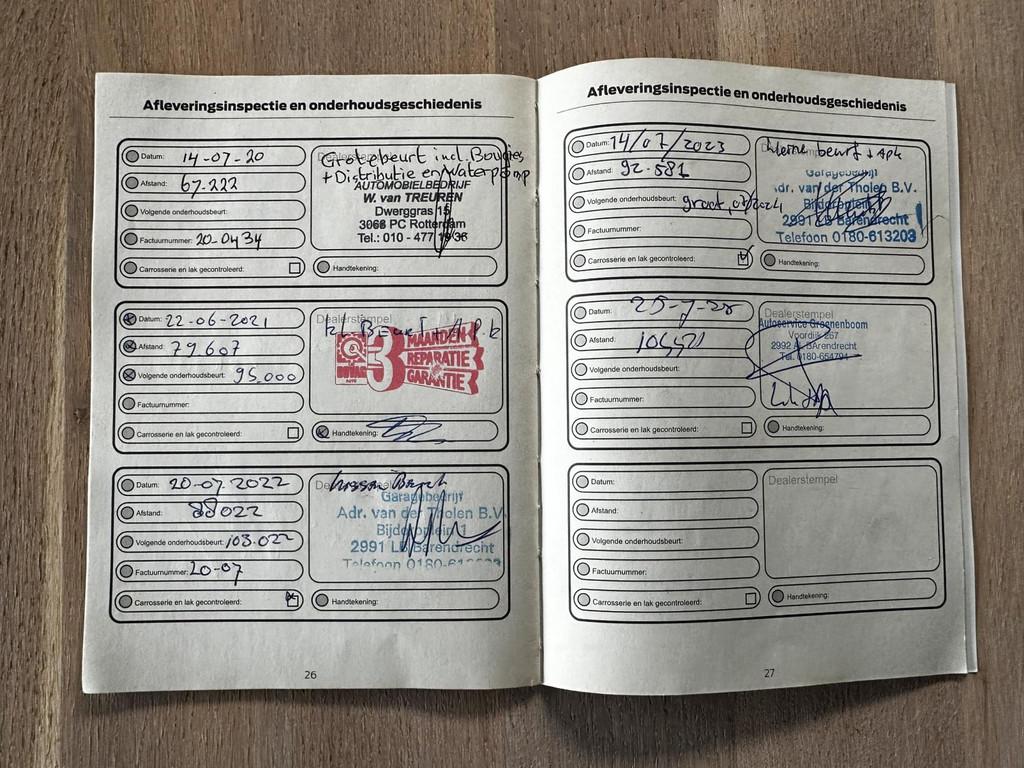 Afleveringsinspectie en onderhoudsgeschiedenis
Datum: 14-07-20
Afstand: 67.222
Volgende onderhoudsbeurt:
Factuurnummer: 20-0434
Carrosserie en lak gecontroleerd:
Grote beurt incl. Bougies
+ Distributie en waterpomp
AUTOMOBIELBEDRIJF
W. van TREUREN
Dwerggras 15
3068 PC Rotterdam
Tel.: 010 - 477 19 36
Handtekening:
Datum: 22-06-2021
Afstand: 79.607
Volgende onderhoudsbeurt: 95.000
Factuurnummer:
Carrosserie en lak gecontroleerd:
Dealerstempel
kl. Beurt + A.P.k
BOVAG
3 MAANDEN
REPARATIE
GARANTIE
Handtekening:
Datum: 20-07-2022
Afstand: 88022
Volgende onderhoudsbeurt: 103.022
Factuurnummer: 20-07
Carrosserie en lak gecontroleerd:
Dealerstempel
Garagebedrijf
Adr. van der Tholen B.V.
Bijdorpplein 1
2991 LB Barendrecht
Telefoon 0180-613203
Handtekening:
26
Afleveringsinspectie en onderhoudsgeschiedenis
Datum: 14/07/2023
Afstand: 92.581
Volgende onderhoudsbeurt: groot, 07/2024
Factuurnummer:
Carrosserie en lak gecontroleerd:
kleine beurt + Apk
Garagebedrijf
Adr. van der Tholen B.V.
Bijdorpplein 1
2991 LB Barendrecht
Telefoon 0180-613203
Handtekening:
Datum:
Afstand:
Volgende onderhoudsbeurt:
Factuurnummer:
Carrosserie en lak gecontroleerd:
Dealerstempel
Autoservice Groenenboom
Voordijk 267
2992 AL BArendrecht
Tel. 0180-654794
Handtekening:
Datum:
Afstand:
Volgende onderhoudsbeurt:
Factuurnummer:
Carrosserie en lak gecontroleerd:
Dealerstempel
Handtekening:
27